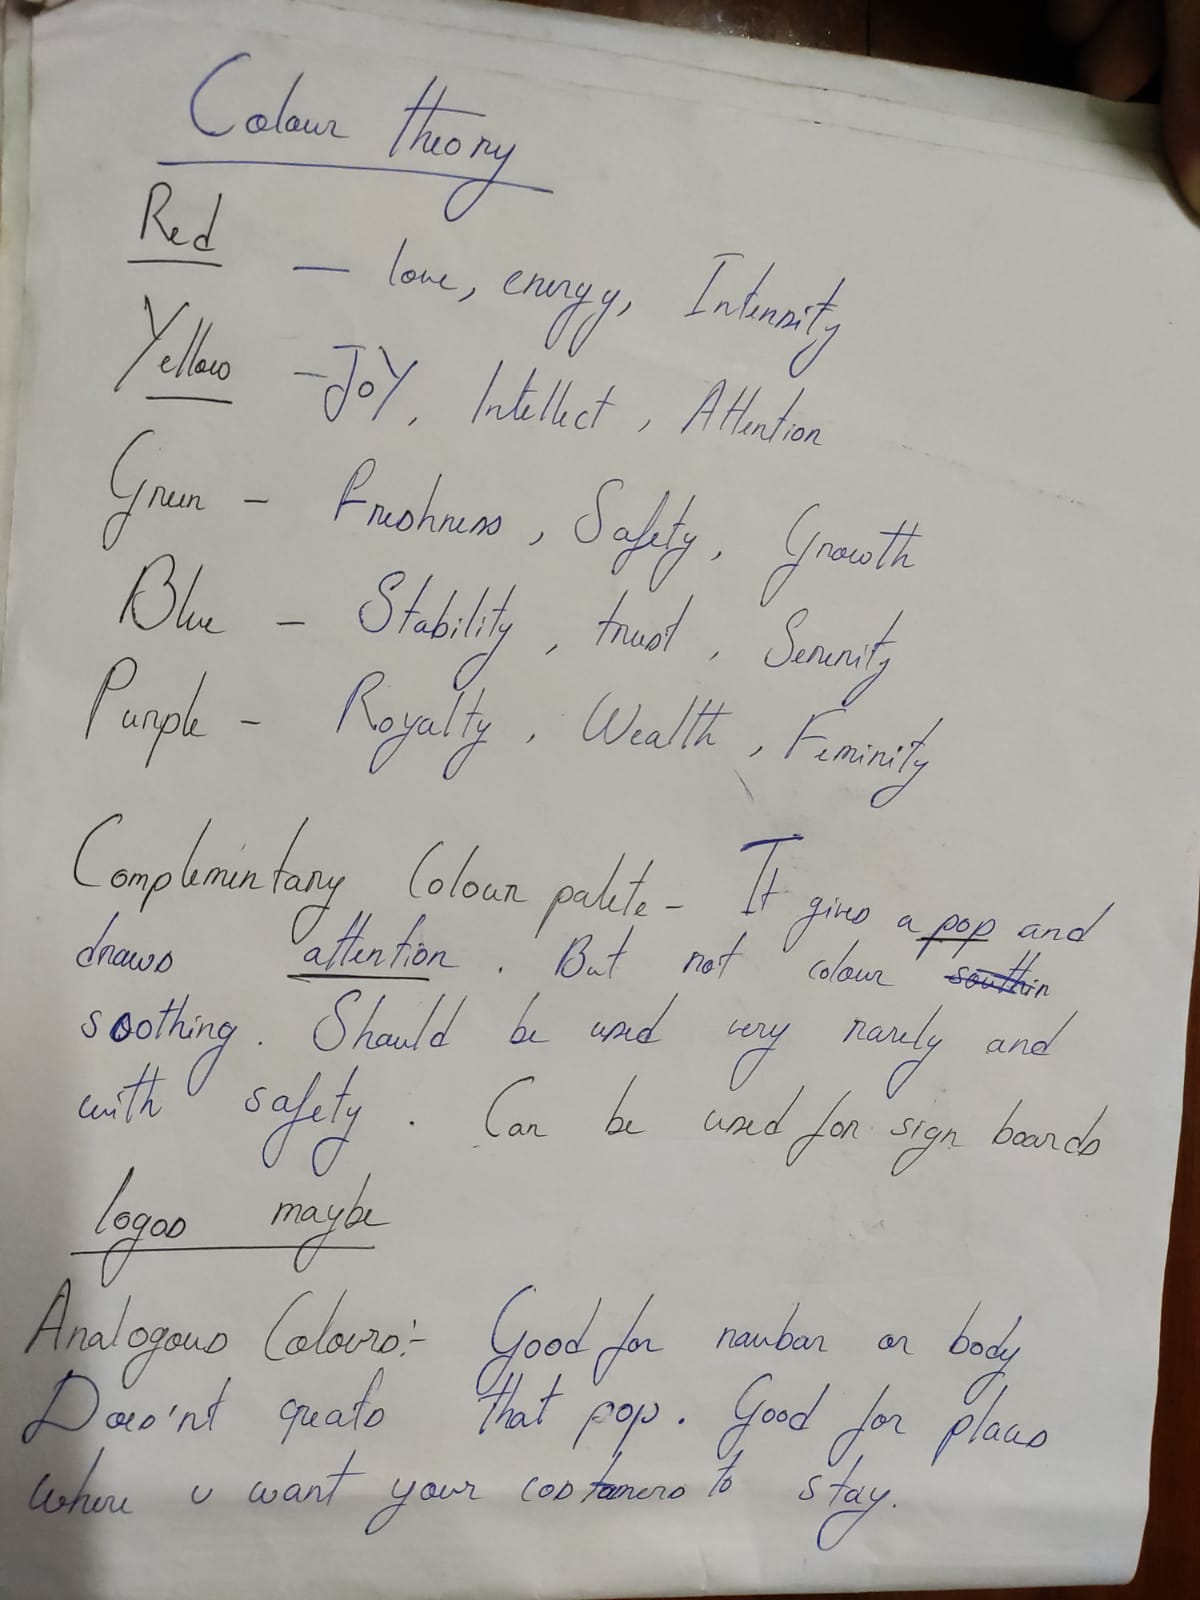 Colour theory
Red — love, energy, Intensity
Yellow - JoY, Intellect, Attention
Green - Freshness, Safety, Growth
Blue - Stability, trust, Serenity
Purple - Royalty, Wealth, Feminity
Complemintary Colour palete - It gives a pop and
draws attention. But not colour southin
soothing. Should be used very rarely and
with safety. Can be used for sign boards
logos maybe
Analogous Colours:- Good for navbar or body
Does'nt creats that pop. Good for places
where u want your costomers to stay.